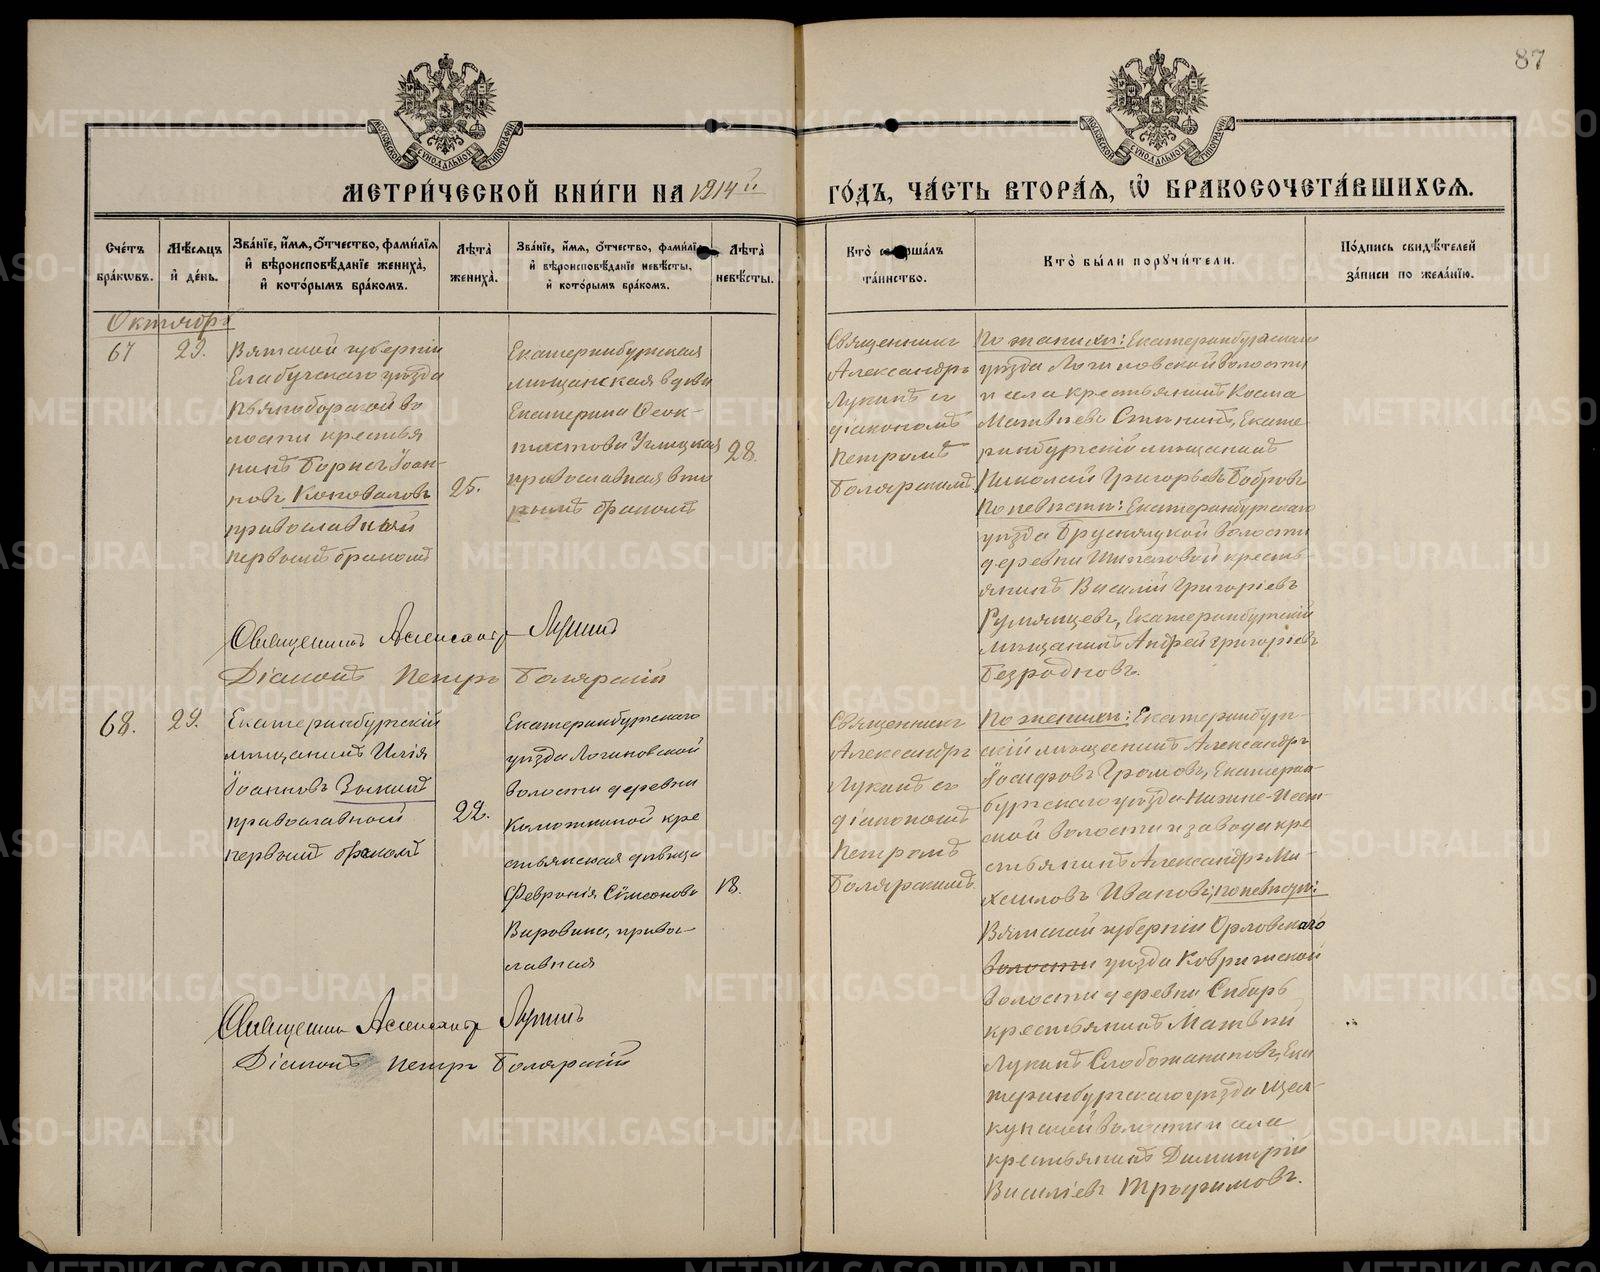 87
МОСКОВСКОЙ СУНОДАЛЬНОЙ ТИПОГРАФІИ
МОСКОВСКОЙ СУНОДАЛЬНОЙ ТИПОГРАФІИ
МЕТРИ́ЧЕСКОЙ КНИ́ГИ НА 1914й
ГО́ДЪ, ЧА́СТЬ ВТОРА́Я, Ѽ БРАКОСОЧЕТА́ВШИХСЯ.
Сче́тъ бра́ковъ.
Мѣ́сяцъ и҆ де́нь.
Зва́ніе, и҆́мя, ѻ҆́тчество, фами́лія и҆ вѣроисповѣ́даніе жениха̀, и҆ кото́рымъ бра́комъ.
Лѣ́та̀ жениха̀.
Зва́ніе, и҆́мя, ѻ҆́тчество, фами́лі и҆ вѣроисповѣ́даніе невѣ́сты, и҆ кото́рымъ бра́комъ.
Лѣ́та̀ невѣ́сты.
Кто̀ соверша́лъ та́инство.
Кто̀ бы́ли поручи́тели.
По́дпись свидѣ́телей за́писи по жела́нію.
Октябрь
67
29.
Вятской губерніи
Елабужскаго уѣзда
Пьяноборской во
лости крестья
нинъ Борисъ Іоан-
новъ Коноваловъ
православный
первымъ бракомъ
25.
Екатеринбургская
мѣщанская вдова
Екатерина Ѳеок-
тистова Углицкая
православная вто
рымъ бракомъ
28.
Священникъ
Александръ
Лукинъ съ
діакономъ
Петромъ
Боляркимъ
По женихѣ: Екатеринбургскаго
уѣзда Логиновской волости
и села крестьянинъ Косма
Матвѣевъ Стининъ, Екате
ринбургскій мѣщанинъ
Николай Григорьевъ Бобровъ
По невѣстѣ: Екатеринбургскаго
уѣзда Бруснятской волости
деревни Шипаловой кресть
янинъ Василій Григоріевъ
Румянцевъ, Екатеринбургскій
мѣщанинъ Андрей Григорьевъ
Безродновъ.
Священникъ Александръ Лукинъ
Діаконъ Петръ Боляркій
68.
29.
Екатеринбургскій
мѣщанинъ Илія
Іоанновъ Зыкинъ
православный
первымъ бракомъ
22.
Екатеринбургскаго
уѣзда Логиновской
волости деревни
Камышкиной кре
стьянская дѣвица
Февронія Сѵмеонова
Вировина, право-
славная
18.
Священникъ
Александръ
Лукинъ съ
діакономъ
Петромъ
Боляркимъ.
По женихѣ: Екатеринбург-
скій мѣщанинъ Александръ
Іосифовъ Громовъ, Екатерин-
бургскаго уѣзда Нижне-Исет-
ской волости и завода кре
стьянинъ Александръ Ми-
хаиловъ Ивановъ; по невѣстѣ:
Вятской губерніи Орловскаго
волости уѣзда Коврижской
волости деревни Сибирь
крестьянинъ Матвѣй
Лукинъ Слобожаниновъ, Ека
теринбургскаго уѣзда Щел-
кунской волости и села
крестьянинъ Димитрій
Василіевъ Трофимовъ.
Священникъ Александръ Лукинъ
Діаконъ Петръ Боляркій
METRIKI.GASO-URAL.RU